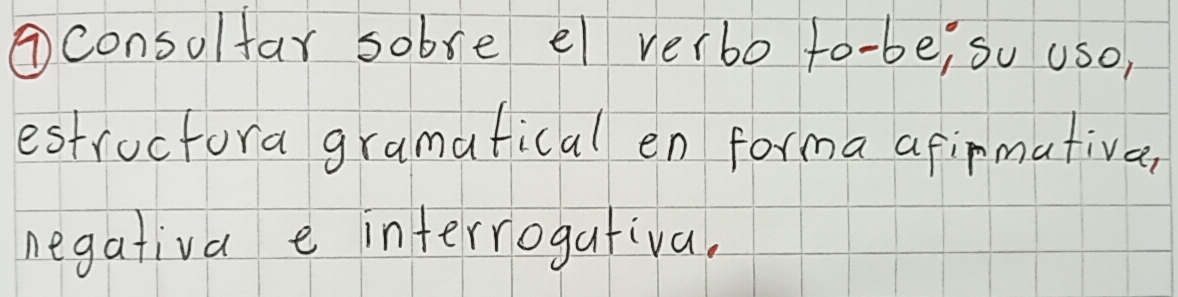 ① Consultar sobre el verbo to-be; su uso,
estructura gramatical en forma afirmativa,
negativa e interrogativa.